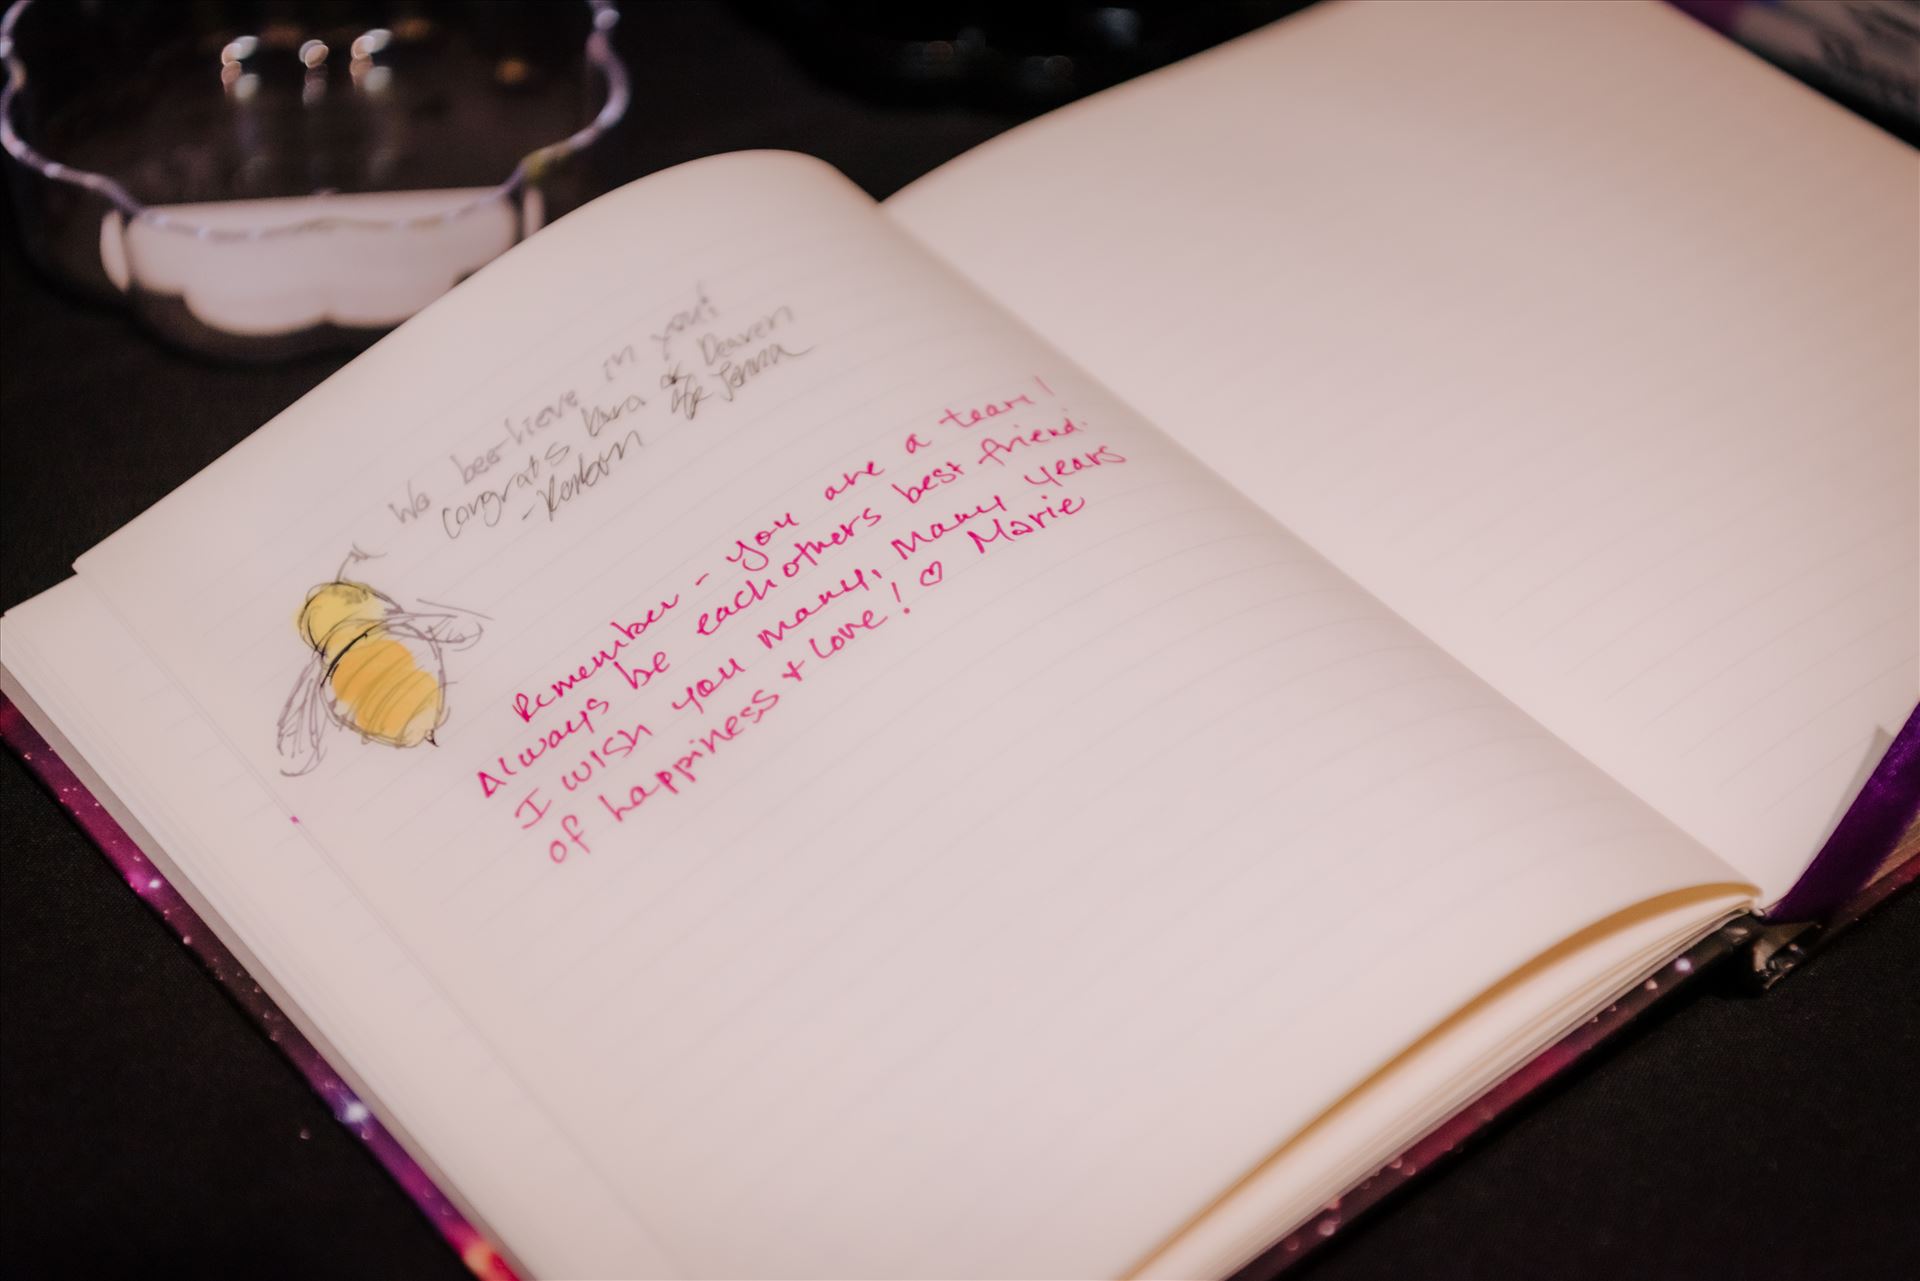 We bee-lieve in you!
congrats Kara & Deaven
- & Jenna
Remember - you are a team!
Always be eachothers best friend.
I wish you many, many, many years
of happiness + love! ♡ Marie